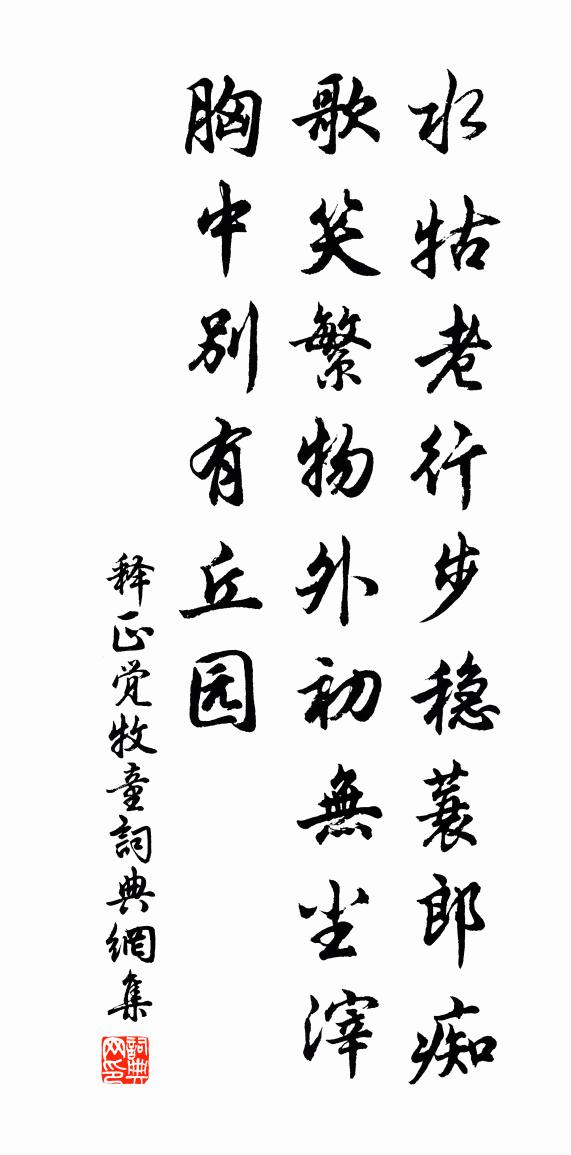 水牯老行步稳蓑郎痴
歌笑繁物外初無尘滓
胸中别有丘园
释正觉牧童詞典網集
詞典网印